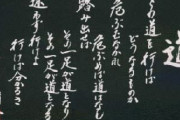 道
この道を行けば
どうなるものか
危ぶむなかれ
危ぶめば道はなし
踏み出せば
その一足が道となり
その一足が道となる
迷わず行けよ
行けば分かる